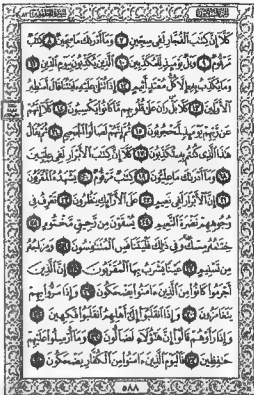 كَلَّا إِنَّ كِتَٰبَ ٱلْفُجَّارِ لَفِي سِجِّينٍ ٧ وَمَآ أَدْرَىٰكَ مَا سِجِّينٌ ٨ كِتَٰبٌ
مَّرْقُومٌ ٩ وَيْلٌ يَوْمَئِذٍ لِّلْمُكَذِّبِينَ ١٠ ٱلَّذِينَ يُكَذِّبُونَ بِيَوْمِ ٱلدِّينِ ١١
وَمَا يُكَذِّبُ بِهِۦٓ إِلَّا كُلُّ مُعْتَدٍ أَثِيمٍ ١٢ إِذَا تُتْلَىٰ عَلَيْهِ ءَايَٰتُنَا قَالَ أَسَٰطِيرُ
ٱلْأَوَّلِينَ ١٣ كَلَّا بَلْ رَانَ عَلَىٰ قُلُوبِهِم مَّا كَانُوا۟ يَكْسِبُونَ ١٤ كَلَّآ إِنَّهُمْ
عَن رَّبِّهِمْ يَوْمَئِذٍ لَّمَحْجُوبُونَ ١٥ ثُمَّ إِنَّهُمْ لَصَالُوا۟ ٱلْجَحِيمِ ١٦ ثُمَّ يُقَالُ
هَٰذَا ٱلَّذِي كُنتُم بِهِۦ تُكَذِّبُونَ ١٧ كَلَّآ إِنَّ كِتَٰبَ ٱلْأَبْرَارِ لَفِي عِلِّيِّينَ
١٨ وَمَآ أَدْرَىٰكَ مَا عِلِّيُّونَ ١٩ كِتَٰبٌ مَّرْقُومٌ ٢٠ يَشْهَدُهُ ٱلْمُقَرَّبُونَ
٢١ إِنَّ ٱلْأَبْرَارَ لَفِي نَعِيمٍ ٢٢ عَلَى ٱلْأَرَآئِكِ يَنظُرُونَ ٢٣ تَعْرِفُ فِي
وُجُوهِهِمْ نَضْرَةَ ٱلنَّعِيمِ ٢٤ يُسْقَوْنَ مِن رَّحِيقٍ مَّخْتُومٍ ٢٥
خِتَٰمُهُۥ مِسْكٌ وَفِي ذَٰلِكَ فَلْيَتَنَافَسِ ٱلْمُتَنَٰفِسُونَ ٢٦ وَمِزَاجُهُۥ
مِن تَسْنِيمٍ ٢٧ عَيْنًا يَشْرَبُ بِهَا ٱلْمُقَرَّبُونَ ٢٨ إِنَّ ٱلَّذِينَ
أَجْرَمُوا۟ كَانُوا۟ مِنَ ٱلَّذِينَ ءَامَنُوا۟ يَضْحَكُونَ ٢٩ وَإِذَا مَرُّوا۟ بِهِمْ
يَتَغَامَزُونَ ٣٠ وَإِذَا ٱنقَلَبُوٓا۟ إِلَىٰٓ أَهْلِهِمُ ٱنقَلَبُوا۟ فَكِهِينَ ٣١
وَإِذَا رَأَوْهُمْ قَالُوٓا۟ إِنَّ هَٰٓؤُلَآءِ لَضَآلُّونَ ٣٢ وَمَآ أُرْسِلُوا۟ عَلَيْهِمْ
حَٰفِظِينَ ٣٣ فَٱلْيَوْمَ ٱلَّذِينَ ءَامَنُوا۟ مِنَ ٱلْكُفَّارِ يَضْحَكُونَ ٣٤
٥٨٨